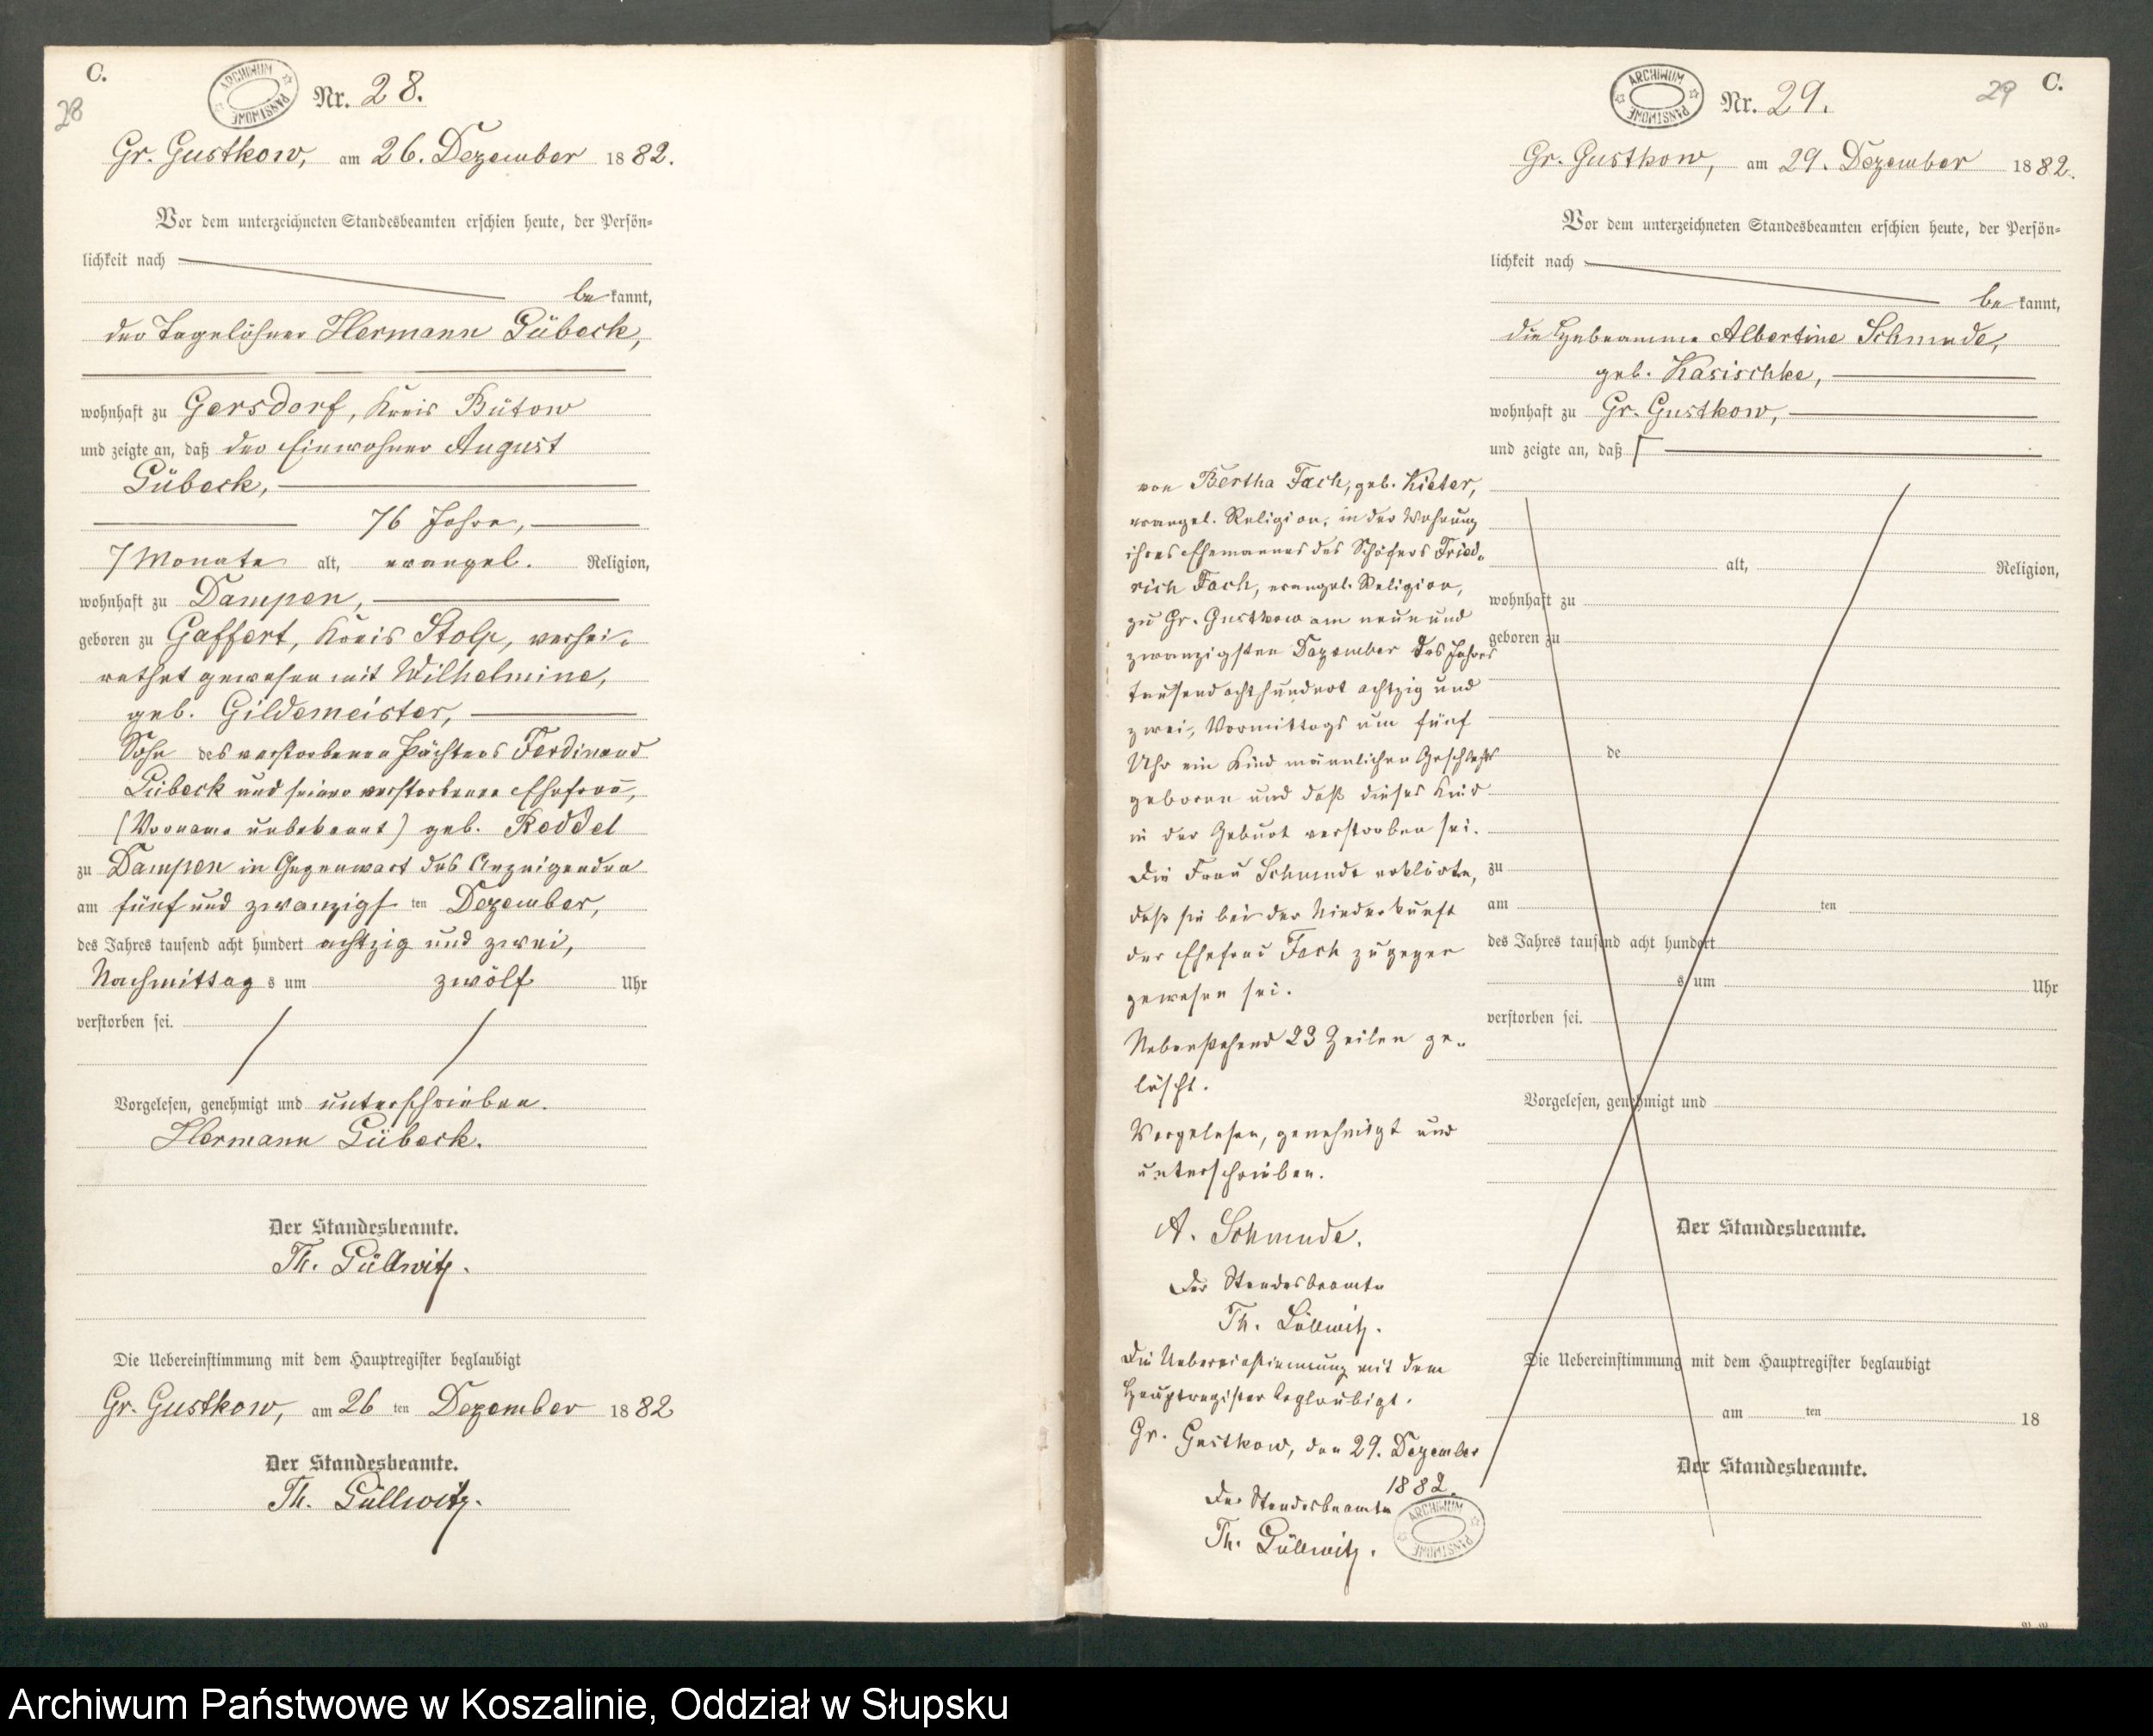 C.
28
ARCHIWUM PAŃSTWOWE
Nr. 28.
Gr. Gustkow, am 26. Dezember 1882.
Vor dem unterzeichneten Standesbeamten erschien heute, der Persön-
lichkeit nach
be kannt,
der Tagelöhner Hermann Lübeck,
wohnhaft zu Gersdorf, Kreis Bütow
und zeigte an, daß der Einwohner August
Lübeck,
76 Jahre,
7 Monate alt, evangel. Religion,
wohnhaft zu Dampen,
geboren zu Gaffert, Kreis Stolp, verhei-
rathet gewesen mit Wilhelmine,
geb. Gildemeister,
Sohn des verstorbenen Pächters Ferdinand
Lübeck und seiner verstorbenen Ehefrau,
(Vorname unbekannt) geb. Reddel
zu Dampen in Gegenwart des Anzeigenden
am fünf und zwanzigs ten Dezember,
des Jahres tausend acht hundert achtzig und zwei,
Nachmittag s um zwölf Uhr
verstorben sei.
Vorgelesen, genehmigt und unterschrieben.
Hermann Lübeck.
Der Standesbeamte.
Th. Lüllwitz.
Die Uebereinstimmung mit dem Hauptregister beglaubigt
Gr. Gustkow, am 26 ten Dezember 1882
Der Standesbeamte.
Th. Lüllwitz.
ARCHIWUM PAŃSTWOWE
Nr. 29.
29
C.
Gr. Gustkow, am 29. Dezember 1882.
Vor dem unterzeichneten Standesbeamten erschien heute, der Persön-
lichkeit nach
be kannt,
die Hebeamme Albertine Schmude,
geb. Kasischke,
wohnhaft zu Gr. Gustkow,
und zeigte an, daß
von Bertha Fach, geb. Kieter,
evangel. Religion, in der Wohnung
ihres Ehemannes des Schäfers Fried-
rich Fach, evangel. Religion,
zu Gr. Gustkow am neun und
zwanzigsten Dezember des Jahres
tausend acht hundert achtzig und
zwei, Vormittags um fünf
Uhr ein Kind männlichen Geschlechts
geboren und daß dieses Kind
in der Geburt verstorben sei.
Die Frau Schmude erklärte,
daß sie bei der Niederkunft
der Ehefrau Fach zugegen
gewesen sei.
Nebenstehend 23 Zeilen ge-
löscht.
Vorgelesen, genehmigt und
unterschrieben.
A. Schmude.
Der Standesbeamte
Th. Lüllwitz.
Die Uebereinstimmung mit dem
Hauptregister beglaubigt.
Gr. Gustkow, den 29. Dezember
1882.
Der Standesbeamte
Th. Lüllwitz.
ARCHIWUM PAŃSTWOWE
alt, Religion,
wohnhaft zu
geboren zu
de
zu
am ten
des Jahres tausend acht hundert
s um Uhr
verstorben sei.
Vorgelesen, genehmigt und
Der Standesbeamte.
Die Uebereinstimmung mit dem Hauptregister beglaubigt
am ten 18
Der Standesbeamte.
Archiwum Państwowe w Koszalinie, Oddział w Słupsku